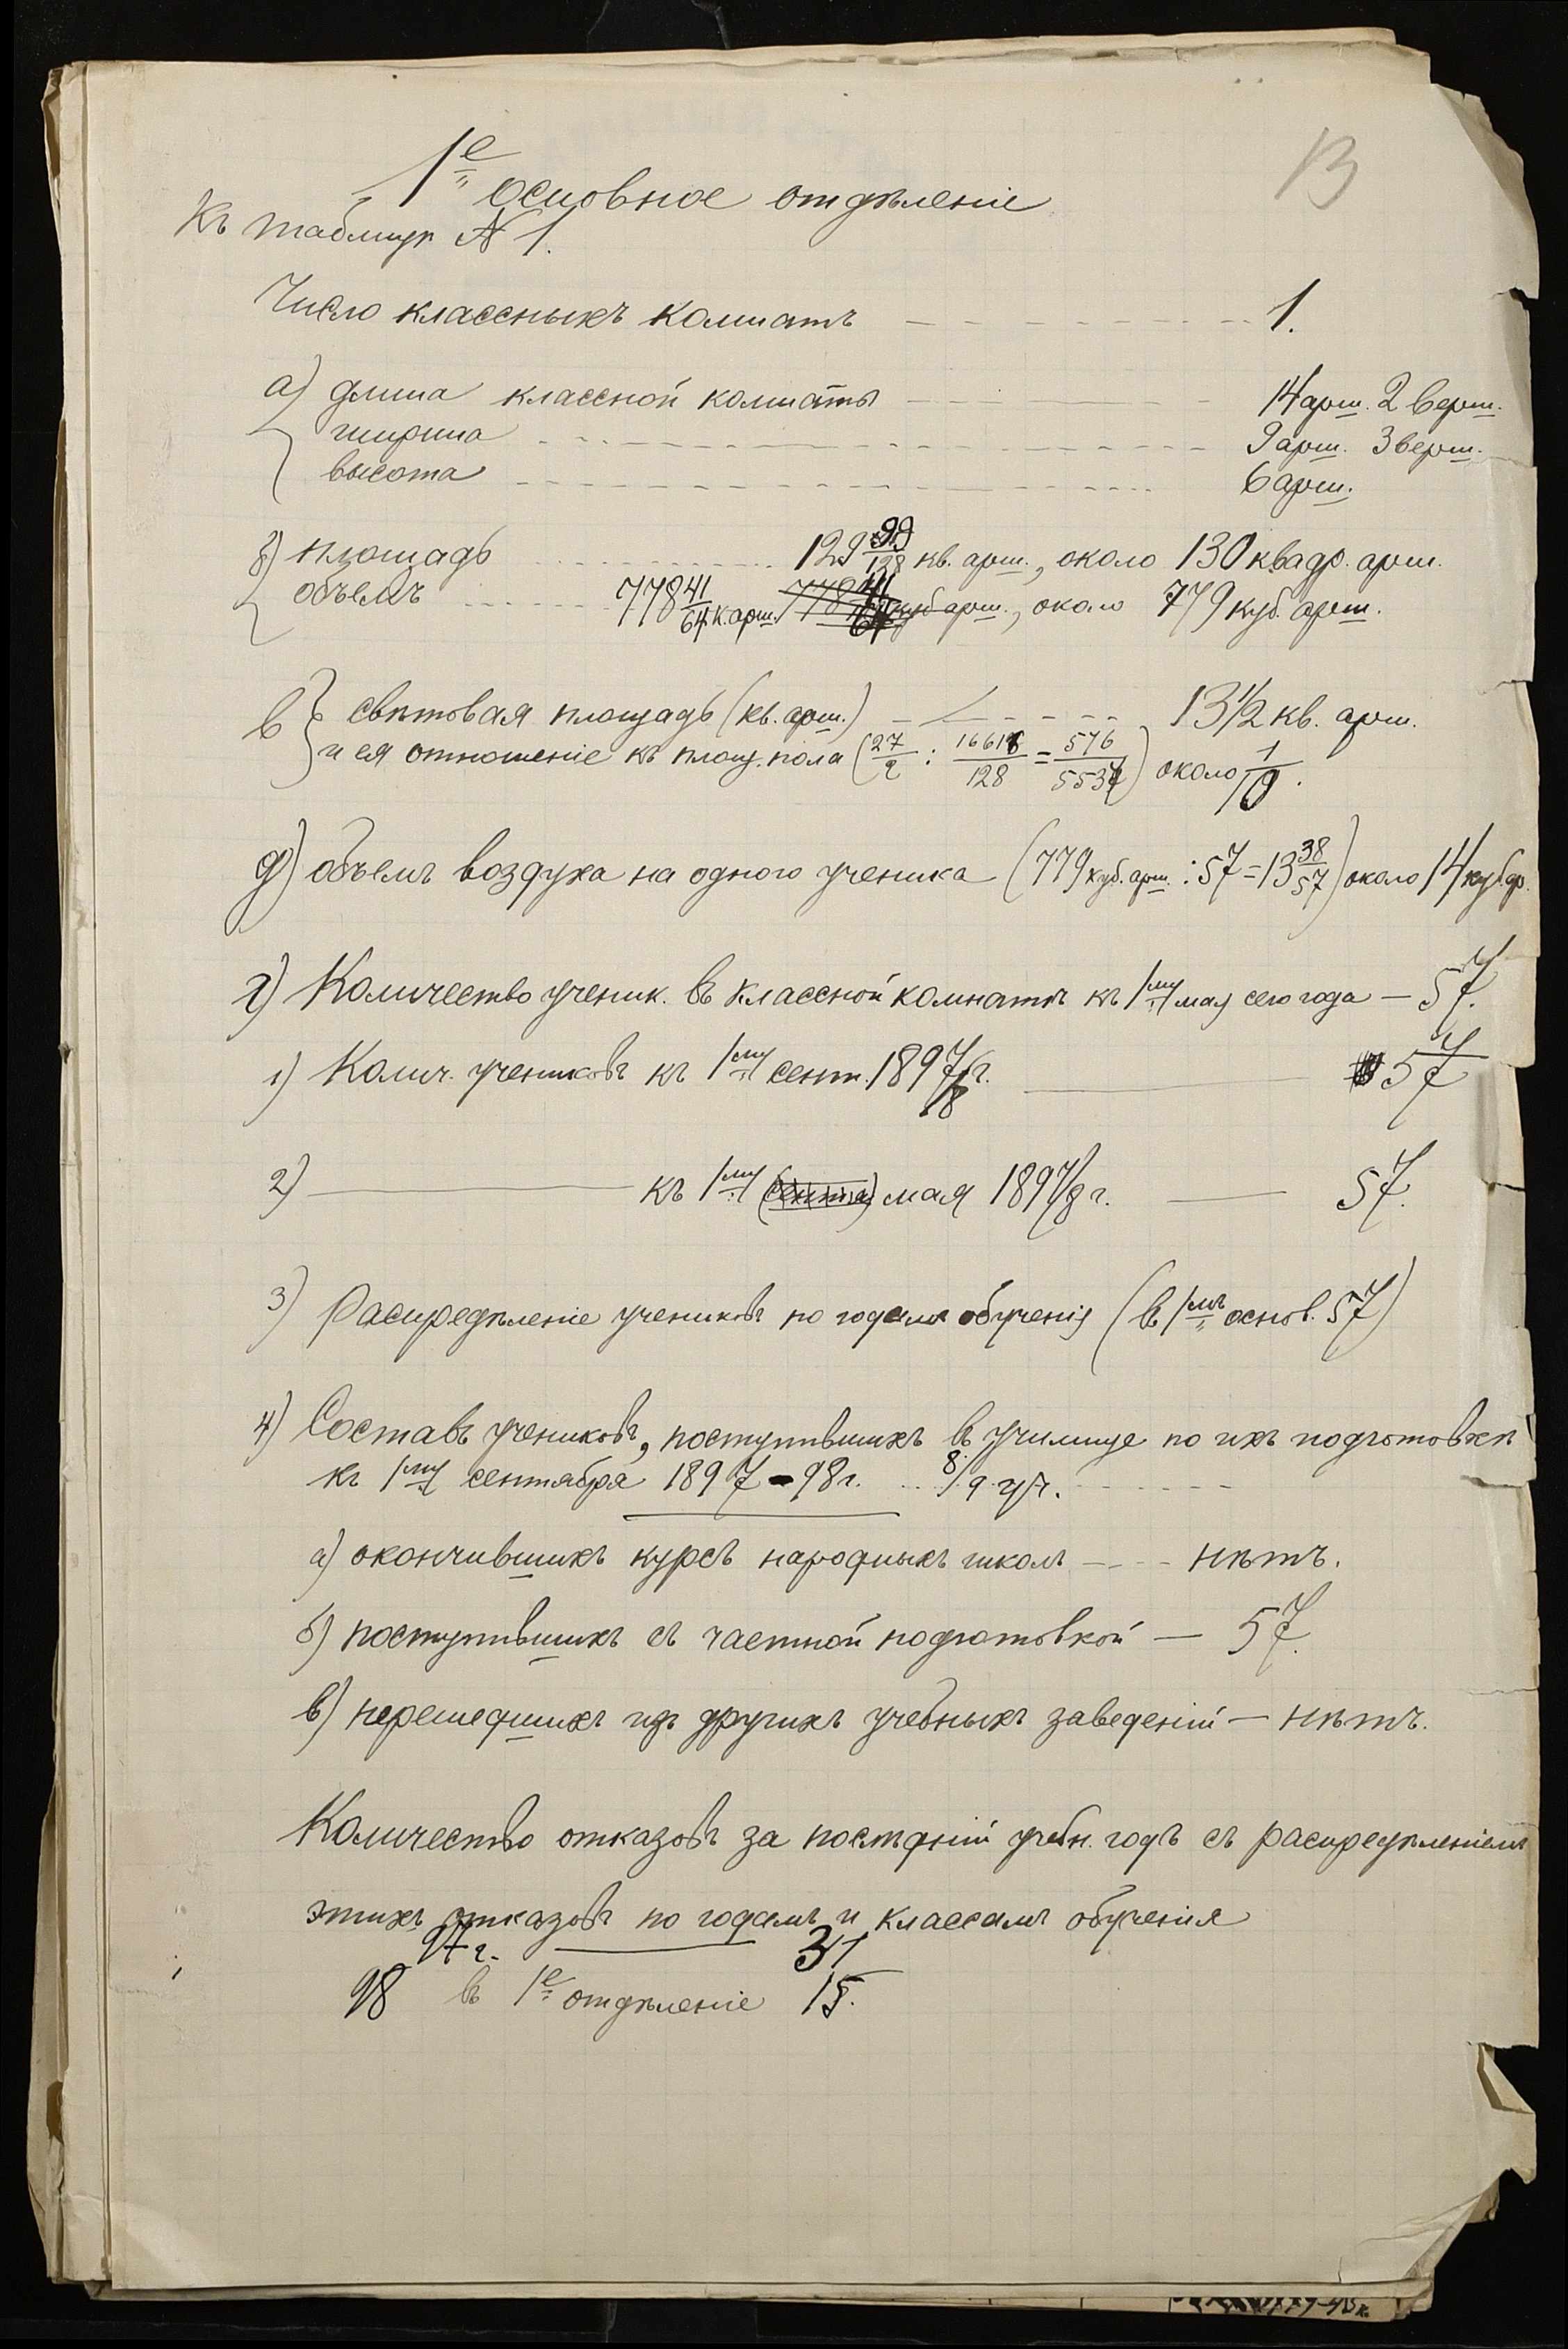 13
1е основное отдѣленіе
Къ таблицѣ № 1.
Число классныхъ комнатъ 1.
а) длина классной комнаты 14 арш. 2 верш.
ширина 9 арш. 3 верш.
высота 6 арш.
б) площадь 129 99/128 кв. арш., около 130 квадр. арш.
объемъ 778 41/64 к. арш. куб арш., около 779 куб. арш.
в) свѣтовая площадь (кв. арш.) 13 1/2 кв. арш.
и ея отношеніе къ площ. пола (27/2 : 16611/128 = 576/5537) около 1/10.
д) объемъ воздуха на одного ученика (779 куб. арш. : 57 = 13 38/57) около 14 куб. ар.
г) Количество ученик. въ классной комнатѣ къ 1му мая сего года — 57.
1) Колич. учениковъ къ 1му сент. 1897/8 г. 57
2) — къ 1му мая 1897/8 г. — 57.
3) Распредѣленіе учениковъ по годамъ обученія (въ 1мъ основ. 57)
4) Составъ учениковъ, поступившихъ въ училище по ихъ подготовкѣ
къ 1му сентября 1897-98 г. 8/9 уч.
а) окончившихъ курсъ народныхъ школъ — нѣтъ.
б) поступившихъ съ частной подготовкой — 57.
в) перешедшихъ изъ другихъ учебныхъ заведеній — нѣтъ.
Количество отказовъ за послѣдній учебн. годъ съ распредѣленіемъ
этихъ отказовъ по годамъ и классамъ обученія
97 г. 31
98 въ 1е отдѣленіе 15.